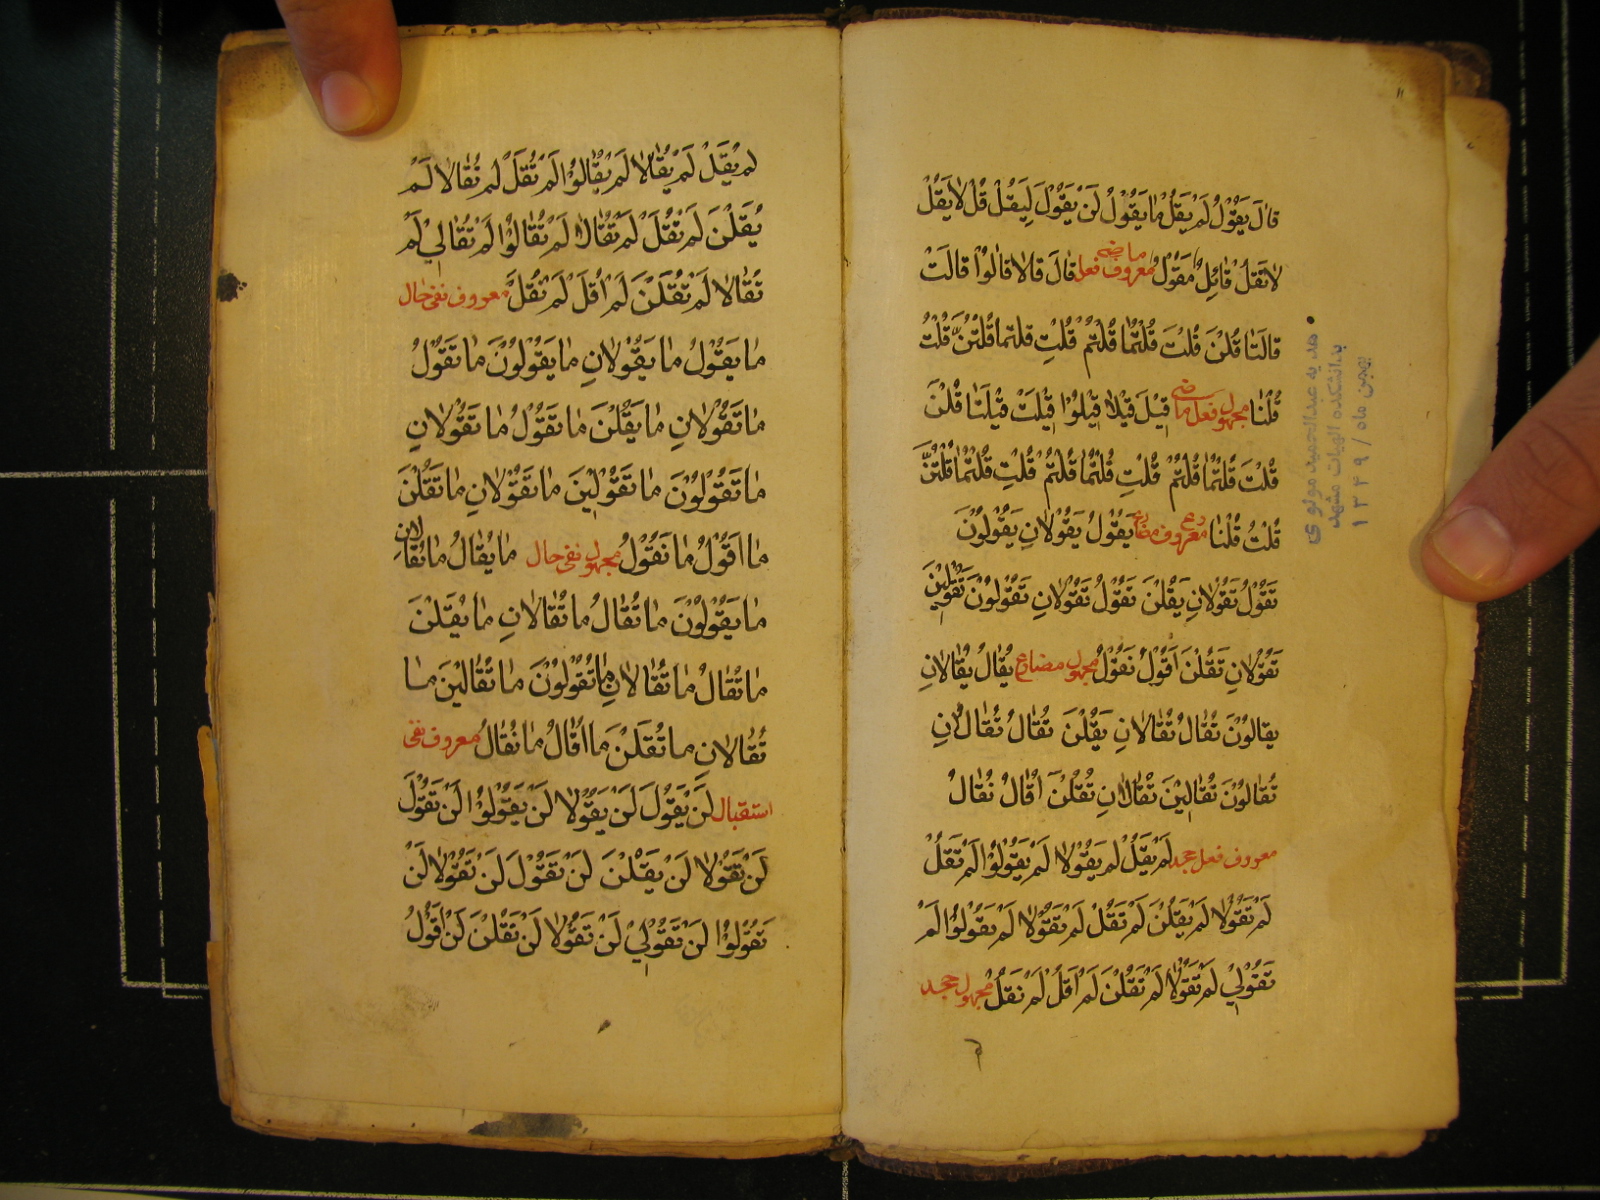 قالَ يَقُوْلُ لَمْ يَقُلْ مٰا يَقُوْلُ لَنْ يَقُوْلَ لِيَقُلْ قُلْ لاٰ يَقُلْ
لاٰ تَقُلْ قٰائِلٌ مَقُوْلٌ معروف فعل ماضی قالَ قالاٰ قالُوْا قالَتْ
قالَتٰا قُلْنَ قُلْتَ قُلْتُمٰا قُلْتُمْ قُلْتِ قلتما قُلْتُنَّ قُلْتُ
قُلْنٰا مجهول فعل ماضی قِيْلَ قِيْلاٰ قِيْلُوْا قِيْلَتْ قِيْلَتٰا قُلْنَ
قُلْتَ قُلْتُمٰا قُلْتُمْ قُلْتِ قُلْتُمٰا قُلْتُمْ قُلْتِ قُلْتُمٰا قُلْتُنَّ
قُلْتُ قُلْنٰا معروف مضارع يَقُوْلُ يَقُوْلاٰنِ يَقُوْلُوْنَ
تَقُوْلُ تَقُوْلاٰنِ يَقُلْنَ تَقُوْلُ تَقُوْلاٰنِ تَقُوْلُوْنَ تَقُوْلِيْنَ
تَقُوْلاٰنِ تَقُلْنَ اَقُوْلُ نَقُوْلُ مجهول مضارع يُقٰالُ يُقٰالاٰنِ
يقالُوْنَ تُقٰالُ تُقٰالاٰنِ يَقُلْنَ تُقٰالُ تُقٰالاٰنِ
تُقٰالُوْنَ تُقٰالِيْنَ تُقٰالاٰنِ تُقُلْنَ اُقٰالُ نُقٰالُ
معروف فعل جحد لَمْ يَقُلْ لَمْ يَقُوْلاٰ لَمْ يَقُوْلُوْا لَمْ تَقُلْ
لَمْ تَقُوْلاٰ لَمْ يَقُلْنَ لَمْ تَقُلْ لَمْ تَقُوْلاٰ لَمْ تَقُوْلُوْا لَمْ
تَقُوْلِيْ لَمْ تَقُوْلاٰ لَمْ تَقُلْنَ لَمْ اَقُلْ لَمْ نَقُلْ مجهول جحد
هدیه عبدالحمید مولوی
بدانشکده الهیات مشهد
بهمن ماه / ۱۳۴۹
لم يُقَلْ لَمْ يُقٰالاٰ لَمْ يُقٰالُوْا لَمْ تُقَلْ لَمْ تُقٰالاٰ لَمْ
يُقَلْنَ لَمْ تُقَلْ لَمْ تُقٰالاٰ لَمْ تُقٰالُوْا لَمْ تُقٰالِيْ لَمْ
تُقٰالاٰ لَمْ تُقَلْنَ لَمْ اُقَلْ لَمْ نُقَلْ معروف نفی حال
مٰا يَقُوْلُ مٰا يَقُوْلاٰنِ مٰا يَقُوْلُوْنَ مٰا تَقُوْلُ
مٰا تَقُوْلاٰنِ مٰا يَقُلْنَ مٰا تَقُوْلُ مٰا تَقُوْلاٰنِ
مٰا تَقُوْلُوْنَ مٰا تَقُوْلِيْنَ مٰا تَقُوْلاٰنِ مٰا تَقُلْنَ
مٰا اَقُوْلُ مٰا نَقُوْلُ مجهول نفی حال مٰا يُقٰالُ مٰا يُقٰالاٰنِ
مٰا يَقُوْلُوْنَ مٰا تُقٰالُ مٰا تُقٰالاٰنِ مٰا يُقَلْنَ
مٰا تُقٰالُ مٰا تُقٰالاٰنِ مٰا تُقُوْلُوْنَ مٰا تُقٰالَيْنَ مٰا
تُقٰالاٰنِ مٰا تُقَلْنَ مٰا اُقٰالُ مٰا نُقٰالُ معروف نفی
استقبال لَنْ يَقُوْلَ لَنْ يَقُوْلاٰ لَنْ يَقُوْلُوْا لَنْ تَقُوْلَ
لَنْ تَقُوْلاٰ لَنْ يَقُلْنَ لَنْ تَقُوْلَ لَنْ تَقُوْلاٰ لَنْ
تَقُوْلُوْا لَنْ تَقُوْلِيْ لَنْ تَقُوْلاٰ لَنْ تَقُلْنَ لَنْ اَقُوْلَ